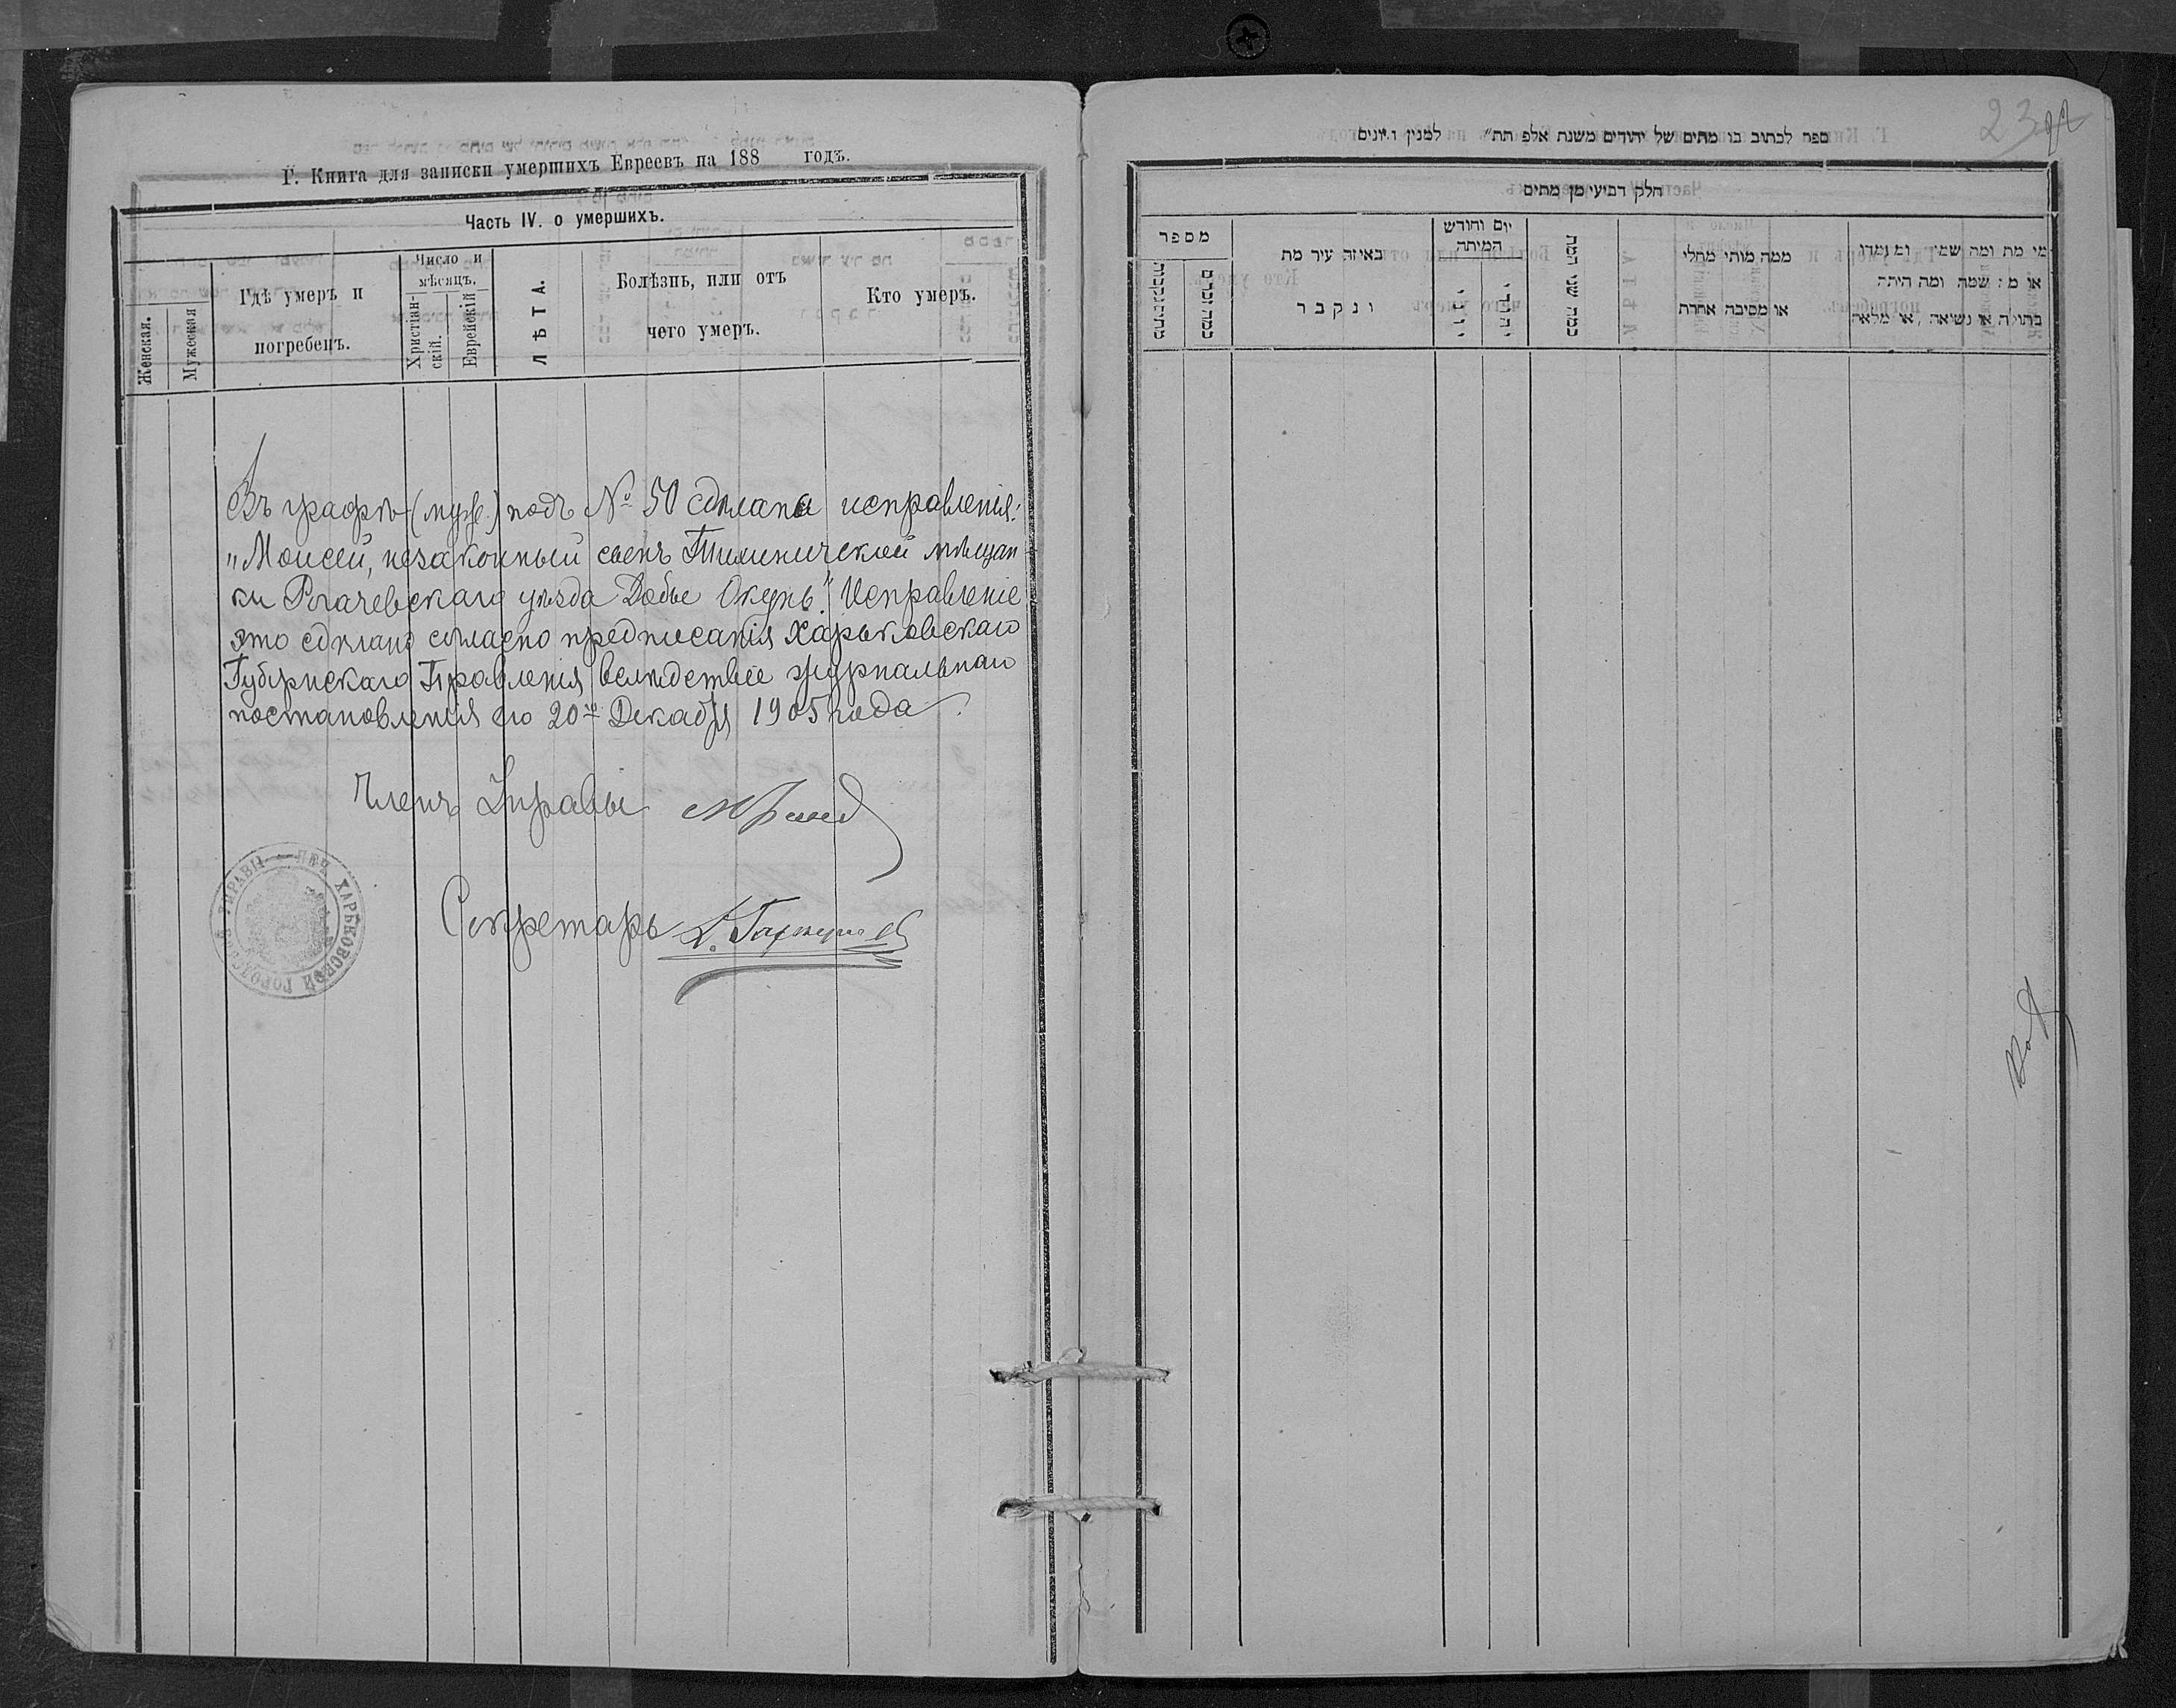 Г. Книга для записки умершихъ Евреевъ на 188 годъ.
Часть IV. о умершихъ.
Женская.
Мужеская
Гдѣ умеръ и
погребенъ.
Число и
мѣсяцъ.
Христіан-
скій.
Еврейскій
ЛѢТА.
Болѣзнь, или отъ
чего умеръ.
Кто умеръ.
Въ графѣ (муж.) подъ № 50 сдѣлана исправленія:
„Моисей, незаконный сынъ Тихиничской мѣщан-
ки Рогачевскаго уѣзда Добы Окунь". Исправленіе
это сдѣлано согласно предписанія Харьковскаго
Губернскаго Правленія вслѣдствіе журнальнаго
постановленія его 20го Декабря 1905 года.
Членъ Управы
Секретарь
ПЕЧ. ХАРЬКОВСКОЙ ГОРОДСКОЙ УПРАВЫ
23
ספר לכתוב בו מתים של יהודים משנת אלף תת״ למנין
חלק רביעי מן מתים
מספר
באיזה עיר מת
ונקבר
יום וחודש
המיתה
יהודי
כמה שני המת
ממה מותי מחלי
או מסיבה אחרת
מי מת ומה שמו
או מ׳ שמה ומה היתה
בתולה או נשואה, או